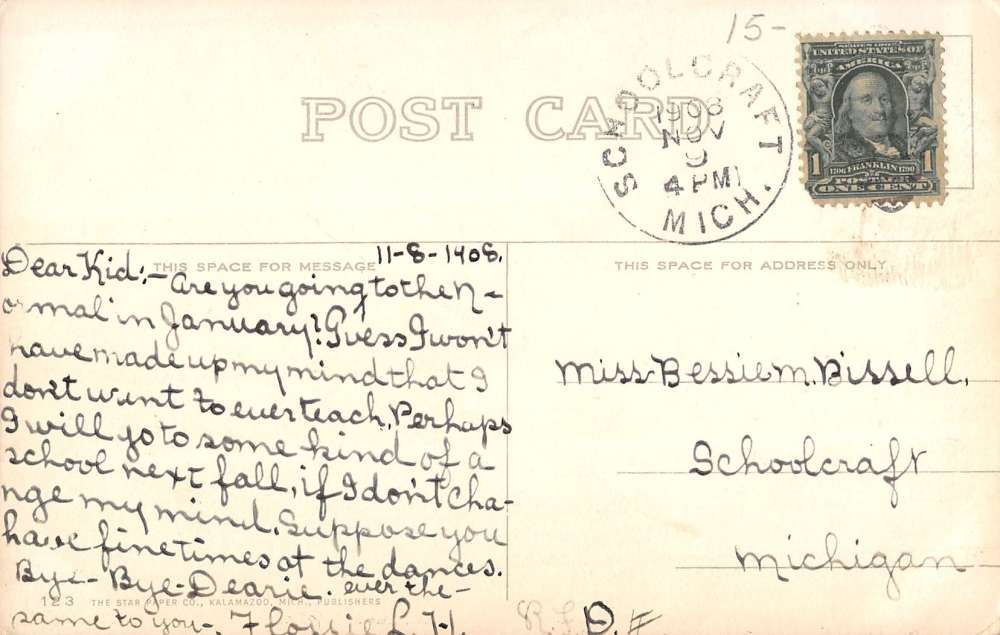 15-
POST CARD
SCHOOLCRAFT
1908
NOV
9
4 PM
MICH.
SERIES 1902
UNITED STATES OF
AMERICA
1 1
1706 FRANKLIN 1790
POSTAGE
ONE CENT
11-8-1908.
THIS SPACE FOR MESSAGE
Dear Kid:-
Are you going to the N-
ormal in January? Guess I won't
have made up my mind that I
don't want to ever teach. Perhaps
I will go to some kind of a
school next fall, if I don't cha-
nge my mind. Suppose you
have fine times at the dances.
Bye- Bye- Dearie. ever the-
123 THE STAR PAPER CO., KALAMAZOO, MICH., PUBLISHERS
same to you-. Flossie L. H.
THIS SPACE FOR ADDRESS ONLY
Miss Bessie M. Bissell,
Schoolcraft
Michigan
R.F.D.#